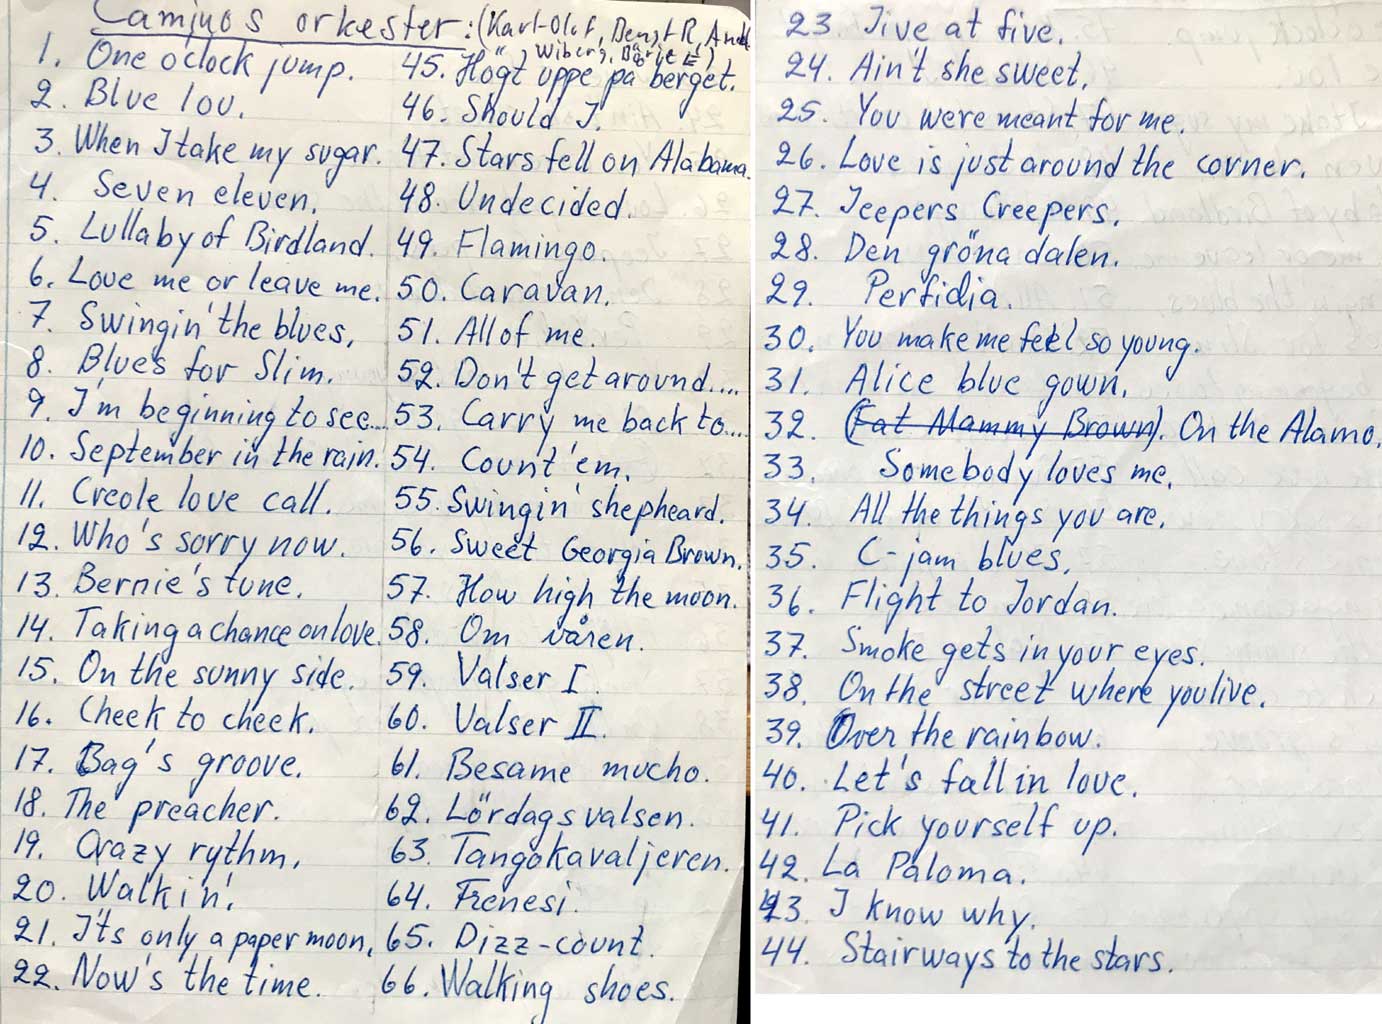 Caminos orkester: (Karl-Olof, Bengt R, And
Wibers, Börje E)
1. One o'clock jump.
2. Blue lou.
3. When I take my sugar.
4. Seven eleven.
5. Lullaby of Birdland.
6. Love me or leave me.
7. Swingin' the blues.
8. Blues for Slim.
9. I'm beginning to see...
10. September in the rain.
11. Creole love call.
12. Who's sorry now.
13. Bernie's tune.
14. Taking a chance on love.
15. On the sunny side.
16. Cheek to cheek.
17. Bag's groove.
18. The preacher.
19. Crazy rythm.
20. Walkin'.
21. It's only a paper moon.
22. Now's the time.
45. Högt uppe på berget.
46. Should I.
47. Stars fell on Alabama.
48. Undecided.
49. Flamingo.
50. Caravan.
51. All of me.
52. Don't get around....
53. Carry me back to....
54. Count 'em.
55. Swingin' shepheard.
56. Sweet Georgia Brown.
57. How high the moon.
58. Om våren.
59. Valser I.
60. Valser II.
61. Besame mucho.
62. Lördagsvalsen.
63. Tangokavaljeren.
64. Frenesi.
65. Dizz-count.
66. Walking shoes.
23. Jive at five.
24. Ain't she sweet.
25. You were meant for me.
26. Love is just around the corner.
27. Jeepers Creepers.
28. Den gröna dalen.
29. Perfidia.
30. You make me feel so young.
31. Alice blue gown.
32. (Fat Mammy Brown). On the Alamo.
33. Somebody loves me.
34. All the things you are.
35. C-jam blues.
36. Flight to Jordan.
37. Smoke gets in your eyes.
38. On the street where you live.
39. Over the rainbow.
40. Let's fall in love.
41. Pick yourself up.
42. La Paloma.
43. I know why.
44. Stairways to the stars.